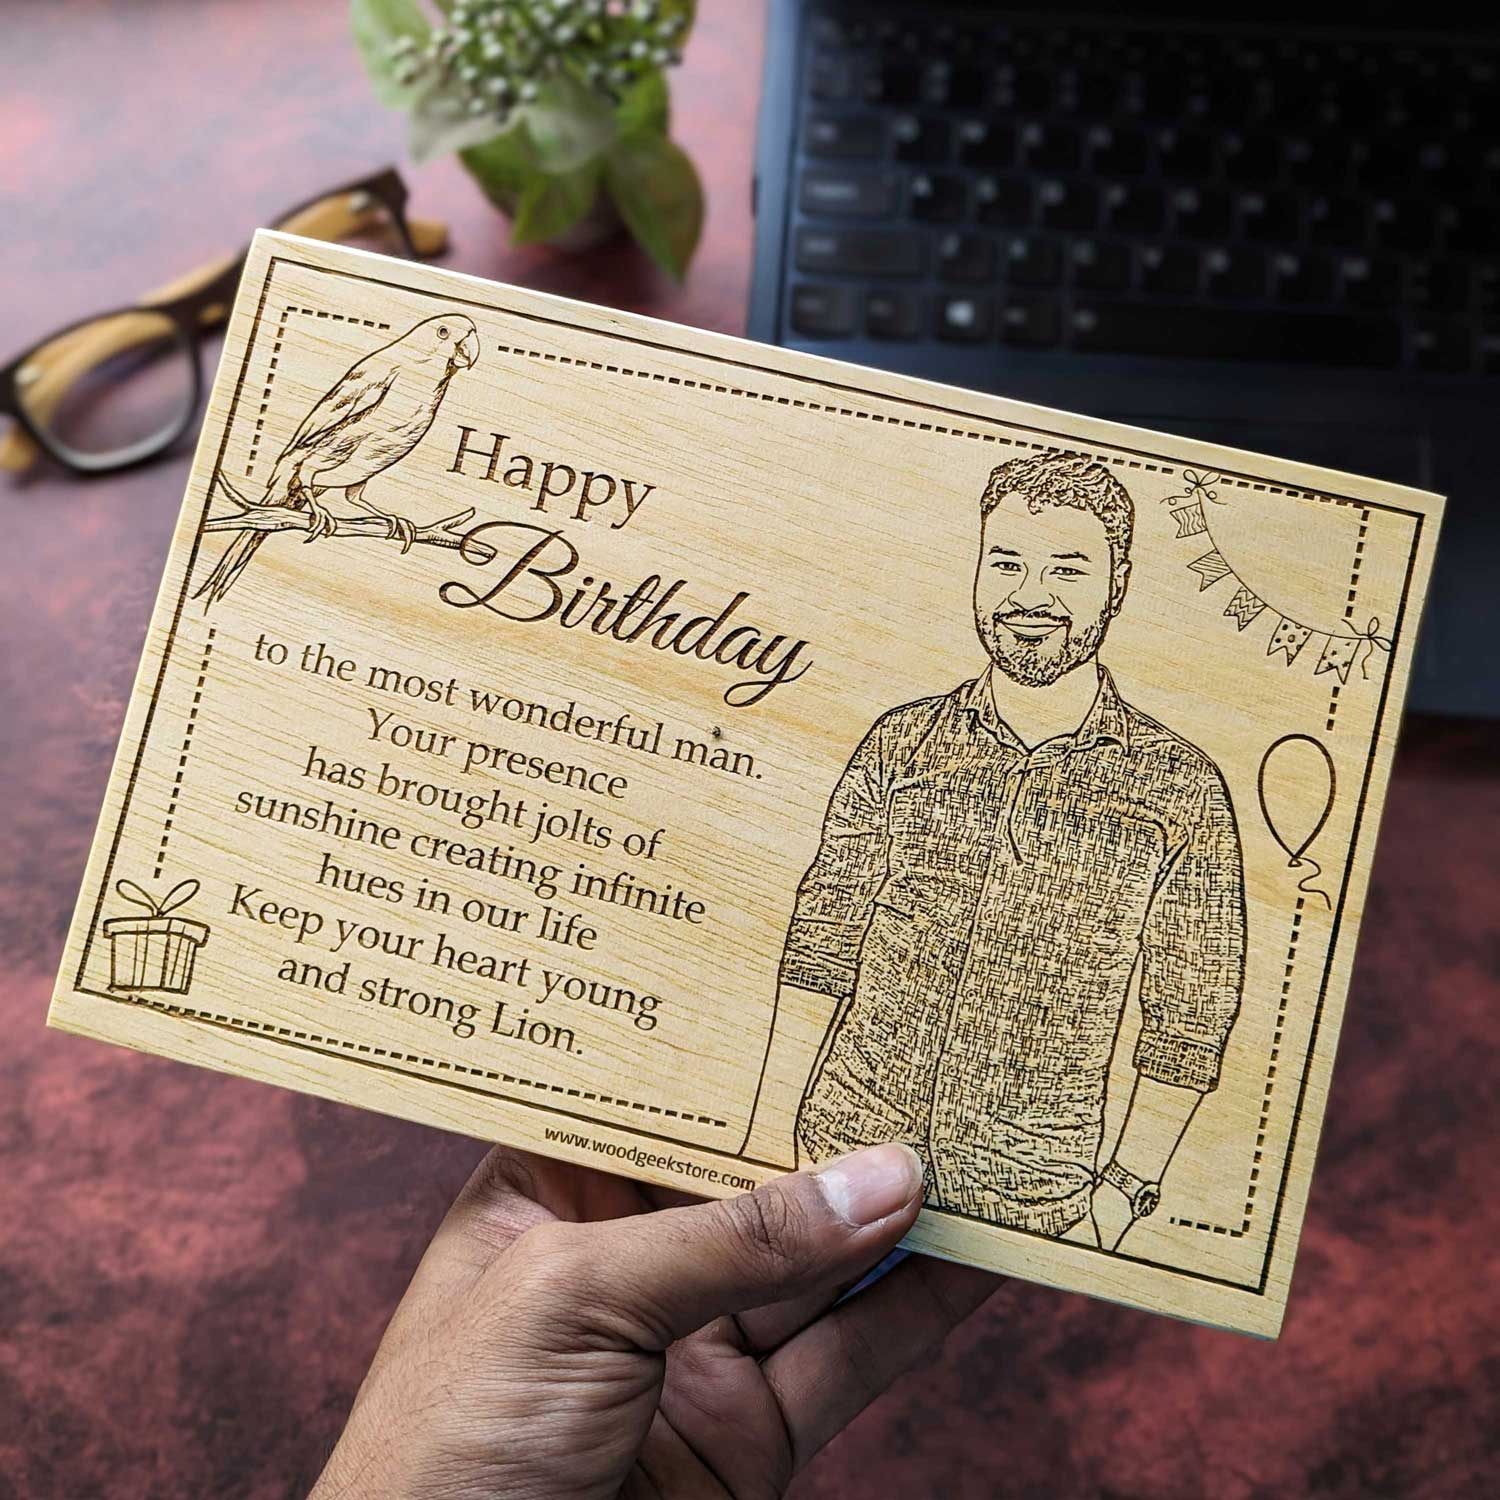 Happy
Birthday
to the most wonderful man.
Your presence
has brought jolts of
sunshine creating infinite
hues in our life
Keep your heart young
and strong Lion.
www.woodgeekstore.com